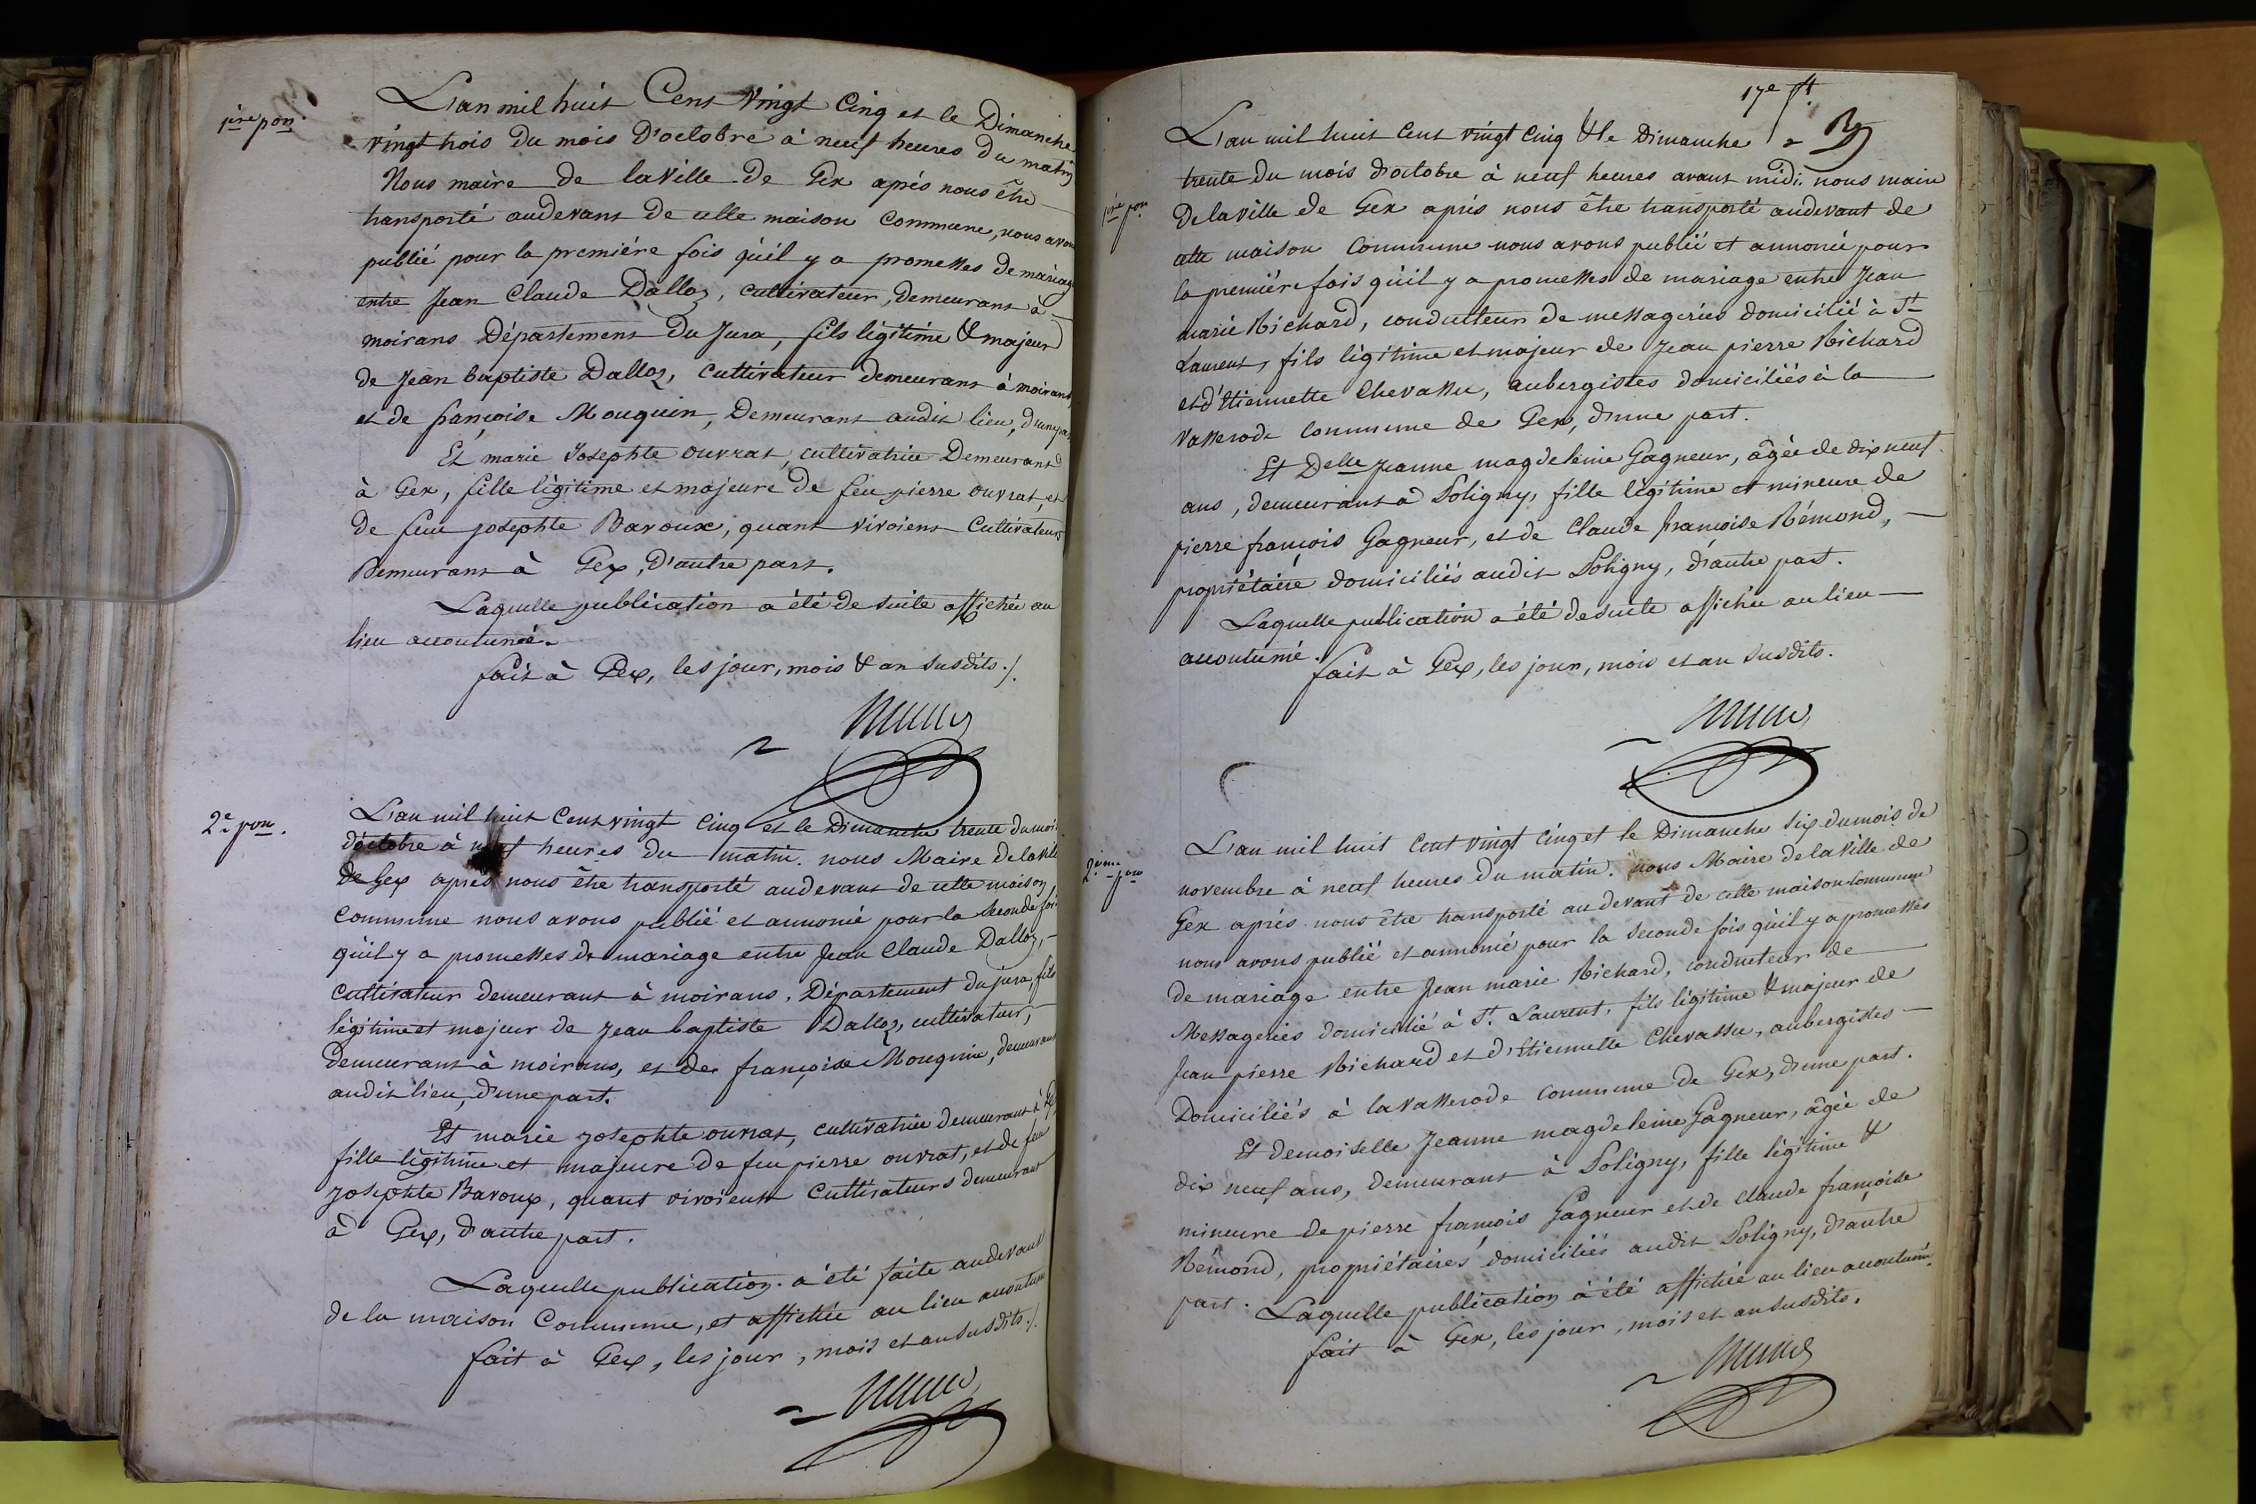 1ère pon.
L'an mil huit Cent Vingt Cinq et le Dimanche
vingt trois du mois D'octobre à neuf heures du matin
Nous maire de la Ville de Gex après nous être
transporté audevant de cette maison Commune, nous avons
publié pour la première fois qu'il y a promesses de mariage
entre Jean Claude Dalloz, cultivateur, demeurant à
moirans Département du Jura, fils légitime & majeur
de Jean baptiste Dalloz, cultivateur demeurant à moirans,
et de françoise Mouquin, Demeurant audit lieu, d'une part
Et marie Josephte ouvrat, cultivatrice Demeurant
à Gex, fille légitime et majeure de feu pierre ouvrat, et
de feue josephte Baroux, quant vivoient Cultivateurs
Demeurant à Gex, D'autre part.
Laquelle publication a été de suite affichée au
lieu accoutumé.
fait à Gex, les jour, mois & an susdits./.
2e pon.
L'an mil huit Cent vingt Cinq et le Dimanche trente du mois
d'octobre à neuf heures du matin. nous Maire de la ville
de Gex après nous être transporté audevant de cette maison
Commune nous avons publié et annoncé pour la seconde fois
qu'il y a promesses de mariage entre Jean Claude Dalloz,
cultivateur demeurant à moirans, Département du jura, fils
légitime et majeur de Jean baptiste Dalloz, cultivateur,
demeurant à moirans, et de françoise Mouquin, demeurant
audit lieu, d'une part.
Et marie josephte ouvrat, cultivatrice demeurant à Gex,
fille légitime et majeure de feu pierre ouvrat, et de feue
josephte Baroux, quant vivoient cultivateurs demeurant
à Gex, d'autre part.
Laquelle publication a été faite audevant
de la maison Commune, et affichée au lieu accoutumé
fait à Gex, les jour, mois et an susdits./.
17e ft.
L'an mil huit cent vingt cinq & le Dimanche
trente du mois d'octobre à neuf heures avant midi. nous maire
1ère pon
De la ville de Gex après nous être transporté audevant de
cette maison Commune nous avons publié et annoncé pour
la première fois qu'il y a promesses de mariage entre Jean
marie Richard, conducteur de messageries domicilié à St
Laurent, fils légitime et majeur de Jean pierre Richard
et d'Etiennette Chevassu, aubergistes domiciliés à la
vasserode commune de Gex, d'une part.
Et Delle Jeanne magdeleine Gagneur, âgée de dix neuf
ans, demeurant à Poligny, fille légitime et mineure de
pierre françois Gagneur, et de Claude françoise Rémond,
propriétaire domiciliés audit Poligny, d'autre part.
Laquelle publication a été de suite affichée au lieu
accoutumé.
fait à Gex, les jour, mois et an susdits.
2ème pon
L'an mil huit cent vingt cinq et le Dimanche six du mois de
novembre à neuf heures du matin. nous Maire de la ville de
Gex après nous être transporté audevant de cette maison Commune
nous avons publié et annoncé pour la seconde fois qu'il y a promesses
de mariage entre Jean marie Richard, conducteur de
Messageries domicilié à St. Laurent, fils légitime & majeur de
Jean pierre Richard et d'Etiennette Chevassu, aubergistes
Domiciliés à la vasserode commune de Gex, d'une part.
Et demoiselle Jeanne magdeleine Gagneur, âgée de
dix neuf ans, demeurant à Poligny, fille légitime &
mineure de pierre françois Gagneur et de Claude françoise
Rémond, propriétaires domiciliés audit Poligny, d'autre
part. Laquelle publication a été affichée au lieu accoutumé.
fait à Gex, les jour, mois et an susdits.